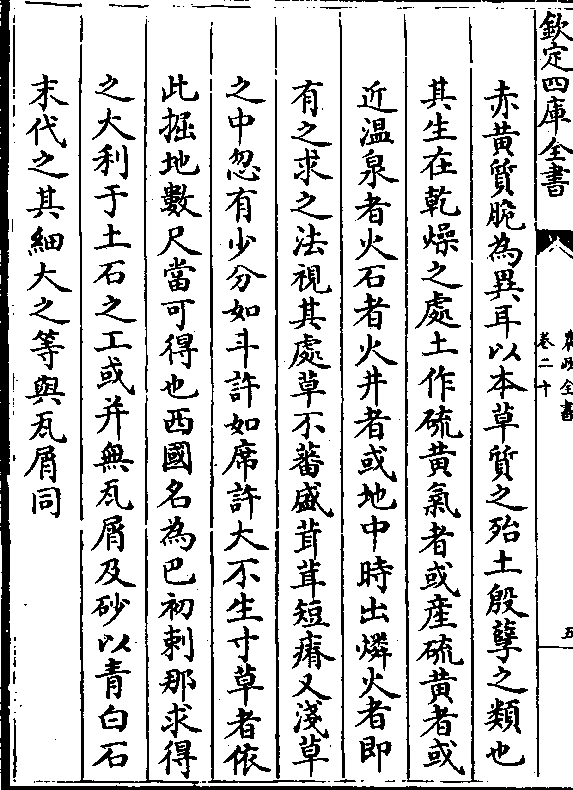 欽定四庫全書
農政全書
卷二十
五
赤黄質脆為異耳以本草質之殆土殷孽之類也
其生在乾燥之處土作硫黄氣者或産硫黄者或
近温泉者火石者火井者或地中時出燐火者即
有之求之法視其處草不蕃盛茸茸短瘠又淺草
之中忽有少分如斗許如席許大不生寸草者依
此掘地數尺當可得也西國名為巴初剌那求得
之大利于土石之工或并無瓦屑及砂以青白石
末代之其細大之等與瓦屑同